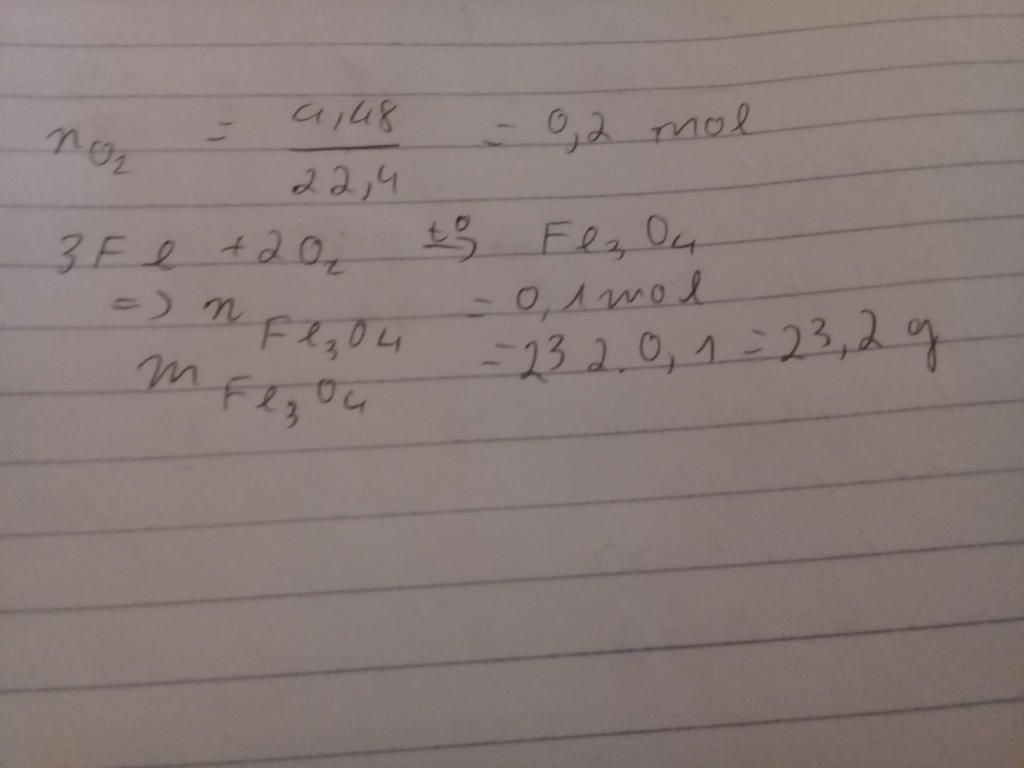 nO₂ = 4,48/22,4 = 0,2 mol
3Fe + 2O₂ t⁰→ Fe₃O₄
=> n Fe₃O₄ = 0,1 mol
m Fe₃O₄ = 232.0,1 = 23,2 g